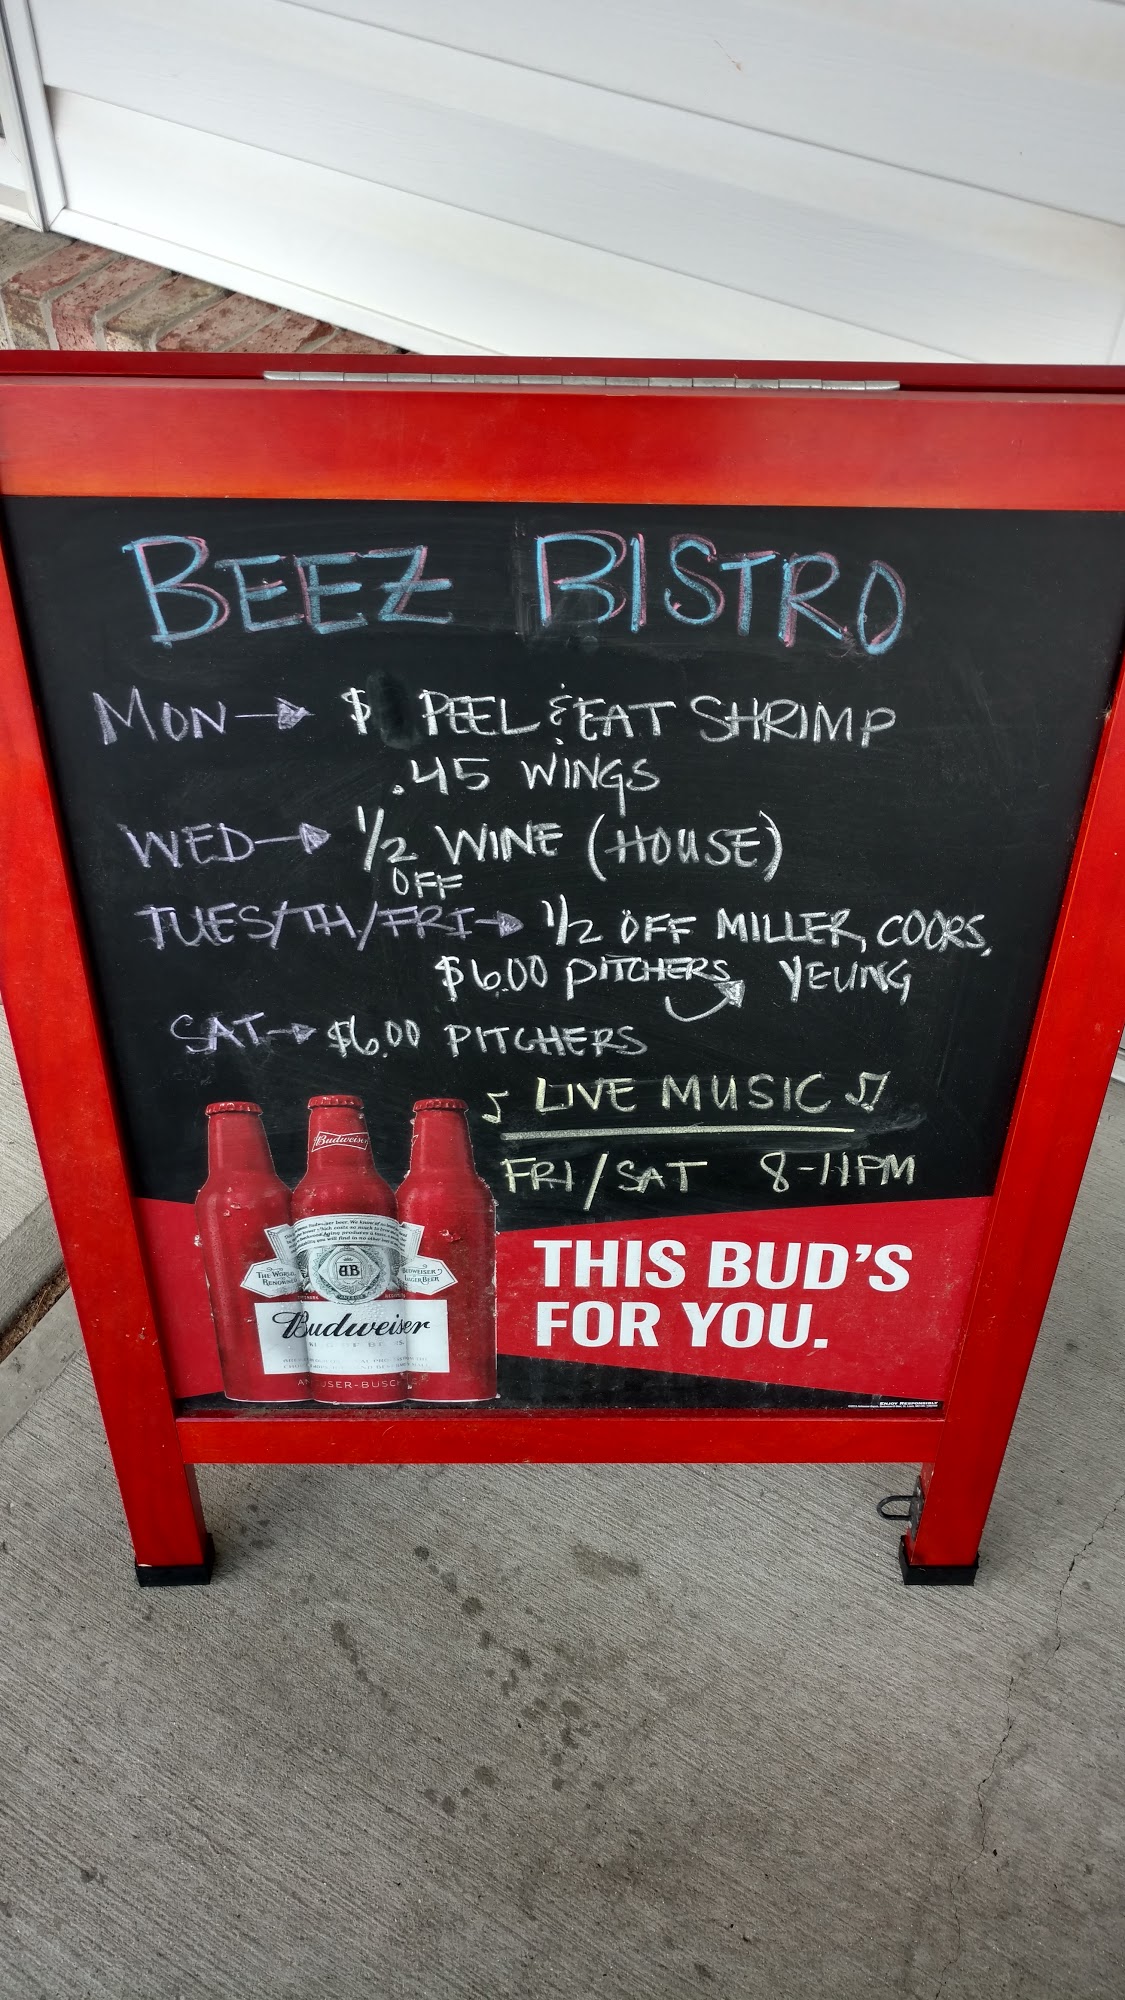 BEEZ BISTRO
MON → $ PEEL & EAT SHRIMP
.45 WINGS
WED → 1/2 WINE (HOUSE)
OFF
TUES/TH/FRI → 1/2 OFF MILLER, COORS,
$6.00 PITCHERS YEUNG
SAT → $6.00 PITCHERS
♪ LIVE MUSIC ♫
FRI/SAT 8-11PM
Budweiser
THE WORLD
RENOWNED
BUDWEISER
LAGER BEER
AB
Budweiser
THIS BUD'S
FOR YOU.
ENJOY RESPONSIBLY